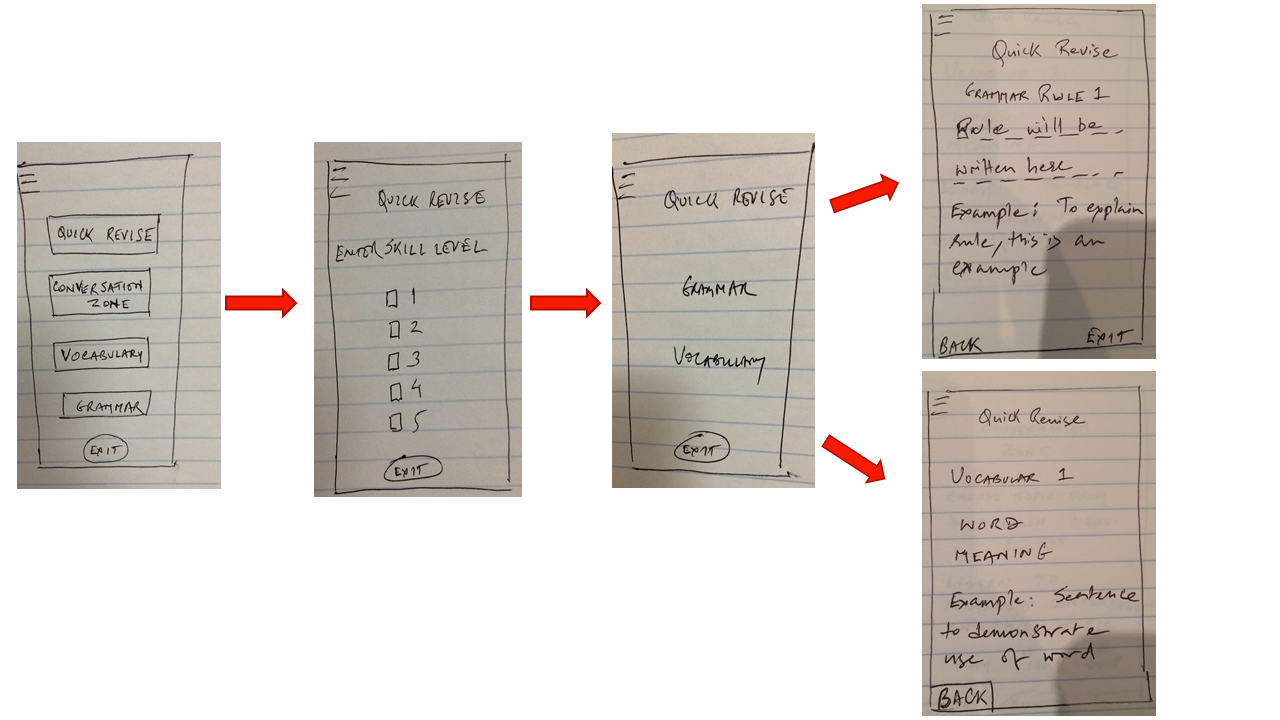 QUICK REVISE
CONVERSATION
ZONE
VOCABULARY
GRAMMAR
EXIT
QUICK REVISE
ENTER SKILL LEVEL
1
2
3
4
5
EXIT
QUICK REVISE
GRAMMAR
VOCABULARY
EXIT
Quick Revise
GRAMMAR RULE 1
Rule will be
written here
Example: To explain
rule, this is an
example
BACK EXIT
Quick Revise
VOCABULAR 1
WORD
MEANING
Example: Sentence
to demonstrate
use of word
BACK